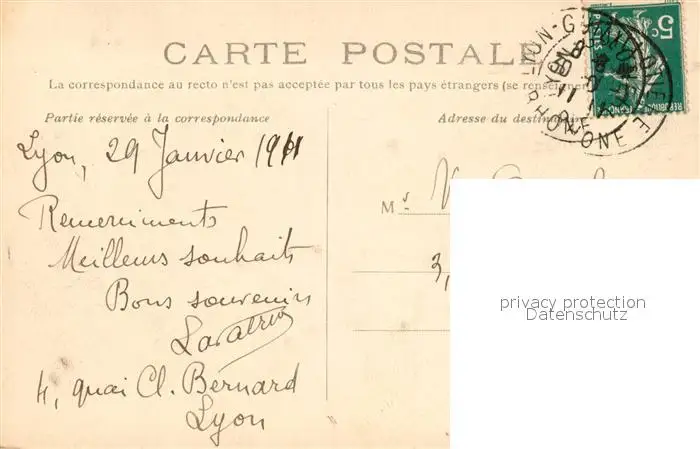 CARTE POSTALE
La correspondance au recto n'est pas acceptée par tous les pays étrangers (se renseigner
Partie réservée à la correspondance
Adresse du destinataire
5c
POSTES
RHONE
Lyon, 29 Janvier 1911
Remerciments
Meilleurs souhaits
Bons souvenirs
4, quai Cl. Bernard
Lyon
Mr
3,
privacy protection
Datenschutz